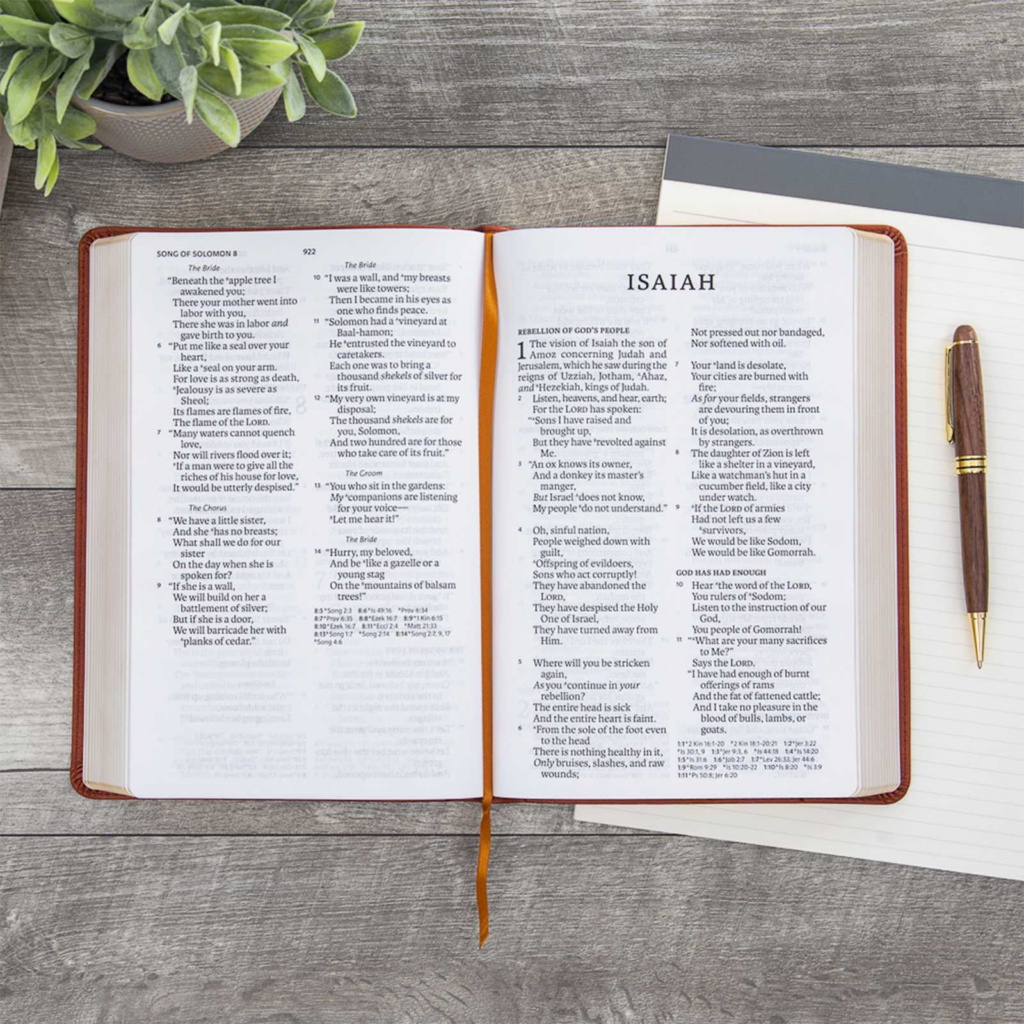 SONG OF SOLOMON 8
922
The Bride
"Beneath the apple tree I
awakened you;
There your mother went into
labor with you,
There she was in labor and
gave birth to you.
6 "Put me like a seal over your
heart,
Like a seal on your arm.
For love is as strong as death,
Jealousy is as severe as
Sheol;
Its flames are flames of fire,
The flame of the LORD.
7 "Many waters cannot quench
love,
Nor will rivers flood over it;
If a man were to give all the
riches of his house for love,
It would be utterly despised."
The Chorus
8 "We have a little sister,
And she has no breasts;
What shall we do for our
sister
On the day when she is
spoken for?
9 "If she is a wall,
We will build on her a
battlement of silver;
But if she is a door,
We will barricade her with
planks of cedar."
The Bride
10 "I was a wall, and my breasts
were like towers;
Then I became in his eyes as
one who finds peace.
11 "Solomon had a vineyard at
Baal-hamon;
He entrusted the vineyard to
caretakers.
Each one was to bring a
thousand shekels of silver for
its fruit.
12 "My very own vineyard is at my
disposal;
The thousand shekels are for
you, Solomon,
And two hundred are for those
who take care of its fruit."
The Groom
13 "You who sit in the gardens:
My companions are listening
for your voice—
Let me hear it!"
The Bride
14 "Hurry, my beloved,
And be like a gazelle or a
young stag
On the mountains of balsam
trees!"
8:5 Song 2:3 8:6 Is 49:16 Prov 6:34
8:7 Prov 6:35 8:8 Ezek 16:7 8:9 1 Kin 6:15
8:10 Ezek 16:7 8:11 Eccl 2:4 Matt 21:33
8:13 Song 1:7 Song 2:14 8:14 Song 2:7, 9, 17
Song 4:6
ISAIAH
REBELLION OF GOD'S PEOPLE
1 The vision of Isaiah the son of
Amoz concerning Judah and
Jerusalem, which he saw during the
reigns of Uzziah, Jotham, Ahaz,
and Hezekiah, kings of Judah.
2 Listen, heavens, and hear, earth;
For the LORD has spoken:
"Sons I have raised and
brought up,
But they have revolted against
Me.
3 "An ox knows its owner,
And a donkey its master's
manger,
But Israel does not know,
My people do not understand."
4 Oh, sinful nation,
People weighed down with
guilt,
Offspring of evildoers,
Sons who act corruptly!
They have abandoned the
LORD,
They have despised the Holy
One of Israel,
They have turned away from
Him.
5 Where will you be stricken
again,
As you continue in your
rebellion?
The entire head is sick
And the entire heart is faint.
6 From the sole of the foot even
to the head
There is nothing healthy in it,
Only bruises, slashes, and raw
wounds;
Not pressed out nor bandaged,
Nor softened with oil.
7 Your land is desolate,
Your cities are burned with
fire;
As for your fields, strangers
are devouring them in front
of you;
It is desolation, as overthrown
by strangers.
8 The daughter of Zion is left
like a shelter in a vineyard,
Like a watchman's hut in a
cucumber field, like a city
under watch.
9 If the LORD of armies
Had not left us a few
survivors,
We would be like Sodom,
We would be like Gomorrah.
GOD HAS HAD ENOUGH
10 Hear the word of the LORD,
You rulers of Sodom;
Listen to the instruction of our
God,
You people of Gomorrah!
11 "What are your many sacrifices
to Me?"
Says the LORD.
"I have had enough of burnt
offerings of rams
And the fat of fattened cattle;
And I take no pleasure in the
blood of bulls, lambs, or
goats.
1:1 2 Kin 16:1-20 2 Kin 18:1-20:21 1:2 Jer 3:22
Is 30:1, 9 1:3 Jer 9:3, 6 Is 44:18 1:4 Is 14:20
1:5 Is 31:6 1:6 Job 2:7 1:7 Lev 26:33; Jer 44:6
1:9 Rom 9:29 Is 10:20-22 1:10 Is 8:20 Is 3:9
1:11 Ps 50:8; Jer 6:20